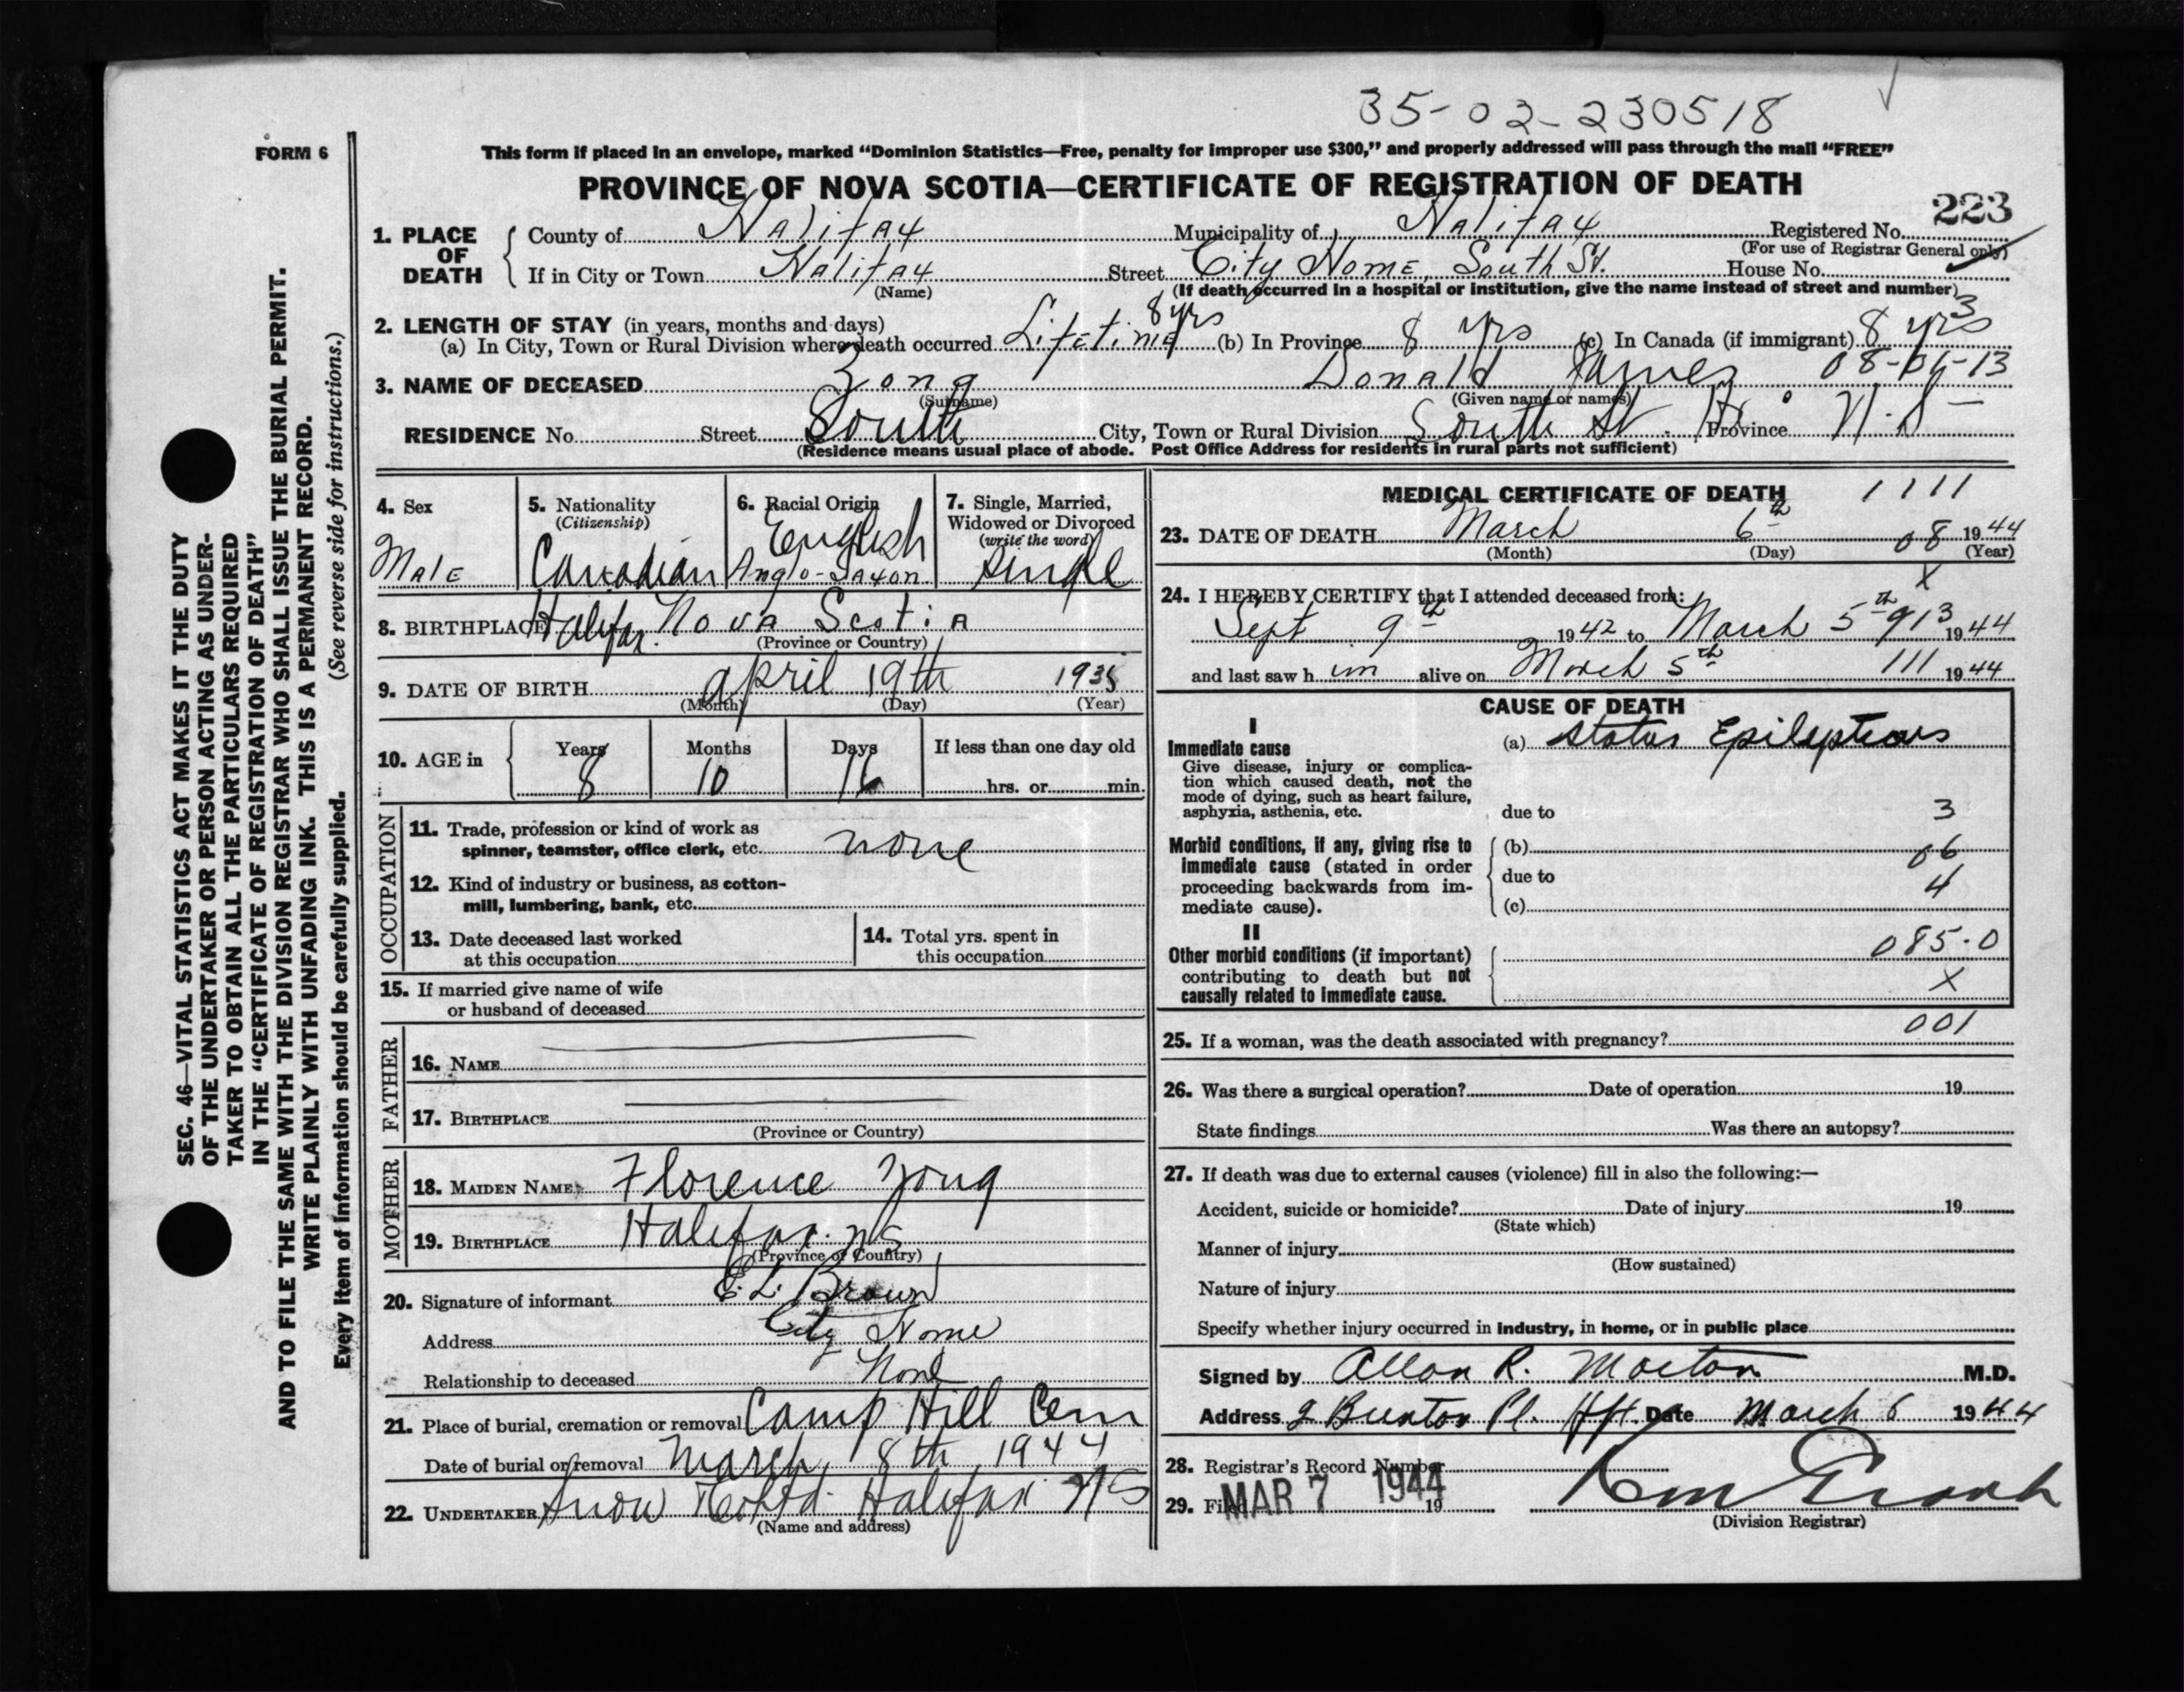 35-02-230518
FORM 6
This form if placed in an envelope, marked "Dominion Statistics—Free, penalty for improper use $300," and properly addressed will pass through the mail "FREE"
PROVINCE OF NOVA SCOTIA—CERTIFICATE OF REGISTRATION OF DEATH
223
1. PLACE OF DEATH
County of Halifax Municipality of Halifax Registered No.
(For use of Registrar General only)
If in City or Town Halifax Street City Home, South St. House No.
(Name) (If death occurred in a hospital or institution, give the name instead of street and number)
2. LENGTH OF STAY (in years, months and days) 8 yrs 3
(a) In City, Town or Rural Division where death occurred Lifetime (b) In Province 8 yrs (c) In Canada (if immigrant) 8 yrs
3. NAME OF DECEASED Zong Donald James 08-06-13
(Surname) (Given name or names)
RESIDENCE No. Street South City, Town or Rural Division South St. Hx. Province N.S.
(Residence means usual place of abode. Post Office Address for residents in rural parts not sufficient)
4. Sex
Male
5. Nationality
(Citizenship)
Canadian
6. Racial Origin
English
Anglo-Saxon
7. Single, Married,
Widowed or Divorced
(write the word)
Single
8. BIRTHPLACE Halifax. Nova Scotia
(Province or Country)
9. DATE OF BIRTH April 19th 1935
(Month) (Day) (Year)
10. AGE in Years Months Days If less than one day old
8 10 16 hrs. or min.
OCCUPATION
11. Trade, profession or kind of work as
spinner, teamster, office clerk, etc. none
12. Kind of industry or business, as cotton-
mill, lumbering, bank, etc.
13. Date deceased last worked
at this occupation
14. Total yrs. spent in
this occupation
15. If married give name of wife
or husband of deceased
FATHER
16. NAME
17. BIRTHPLACE
(Province or Country)
MOTHER
18. MAIDEN NAME Florence Zong
19. BIRTHPLACE Halifax. NS
(Province or Country)
20. Signature of informant E. L. Brown
Address City Home
Relationship to deceased None
21. Place of burial, cremation or removal Camp Hill Cem
Date of burial or removal March 8th, 1944
22. UNDERTAKER Snow & Co Ltd. Halifax NS
(Name and address)
MEDICAL CERTIFICATE OF DEATH 1111
23. DATE OF DEATH March 6th 08 1944
(Month) (Day) (Year)
X
24. I HEREBY CERTIFY that I attended deceased from:
Sept 9th 1942 to March 5th 913 1944
and last saw him alive on March 5th 111 1944
CAUSE OF DEATH
I
Immediate cause
Give disease, injury or complica-
tion which caused death, not the
mode of dying, such as heart failure,
asphyxia, asthenia, etc.
(a) Status Epilepticus
due to 3
Morbid conditions, if any, giving rise to
immediate cause (stated in order
proceeding backwards from im-
mediate cause).
(b) 06
due to 4
(c)
II
Other morbid conditions (if important)
contributing to death but not
causally related to immediate cause.
085.0
X
001
25. If a woman, was the death associated with pregnancy?
26. Was there a surgical operation? Date of operation 19
State findings Was there an autopsy?
27. If death was due to external causes (violence) fill in also the following:—
Accident, suicide or homicide? Date of injury 19
(State which)
Manner of injury
(How sustained)
Nature of injury
Specify whether injury occurred in industry, in home, or in public place
Signed by Allan R. Morton M.D.
Address 2 Pl. Hfx. Date March 6 1944
28. Registrar's Record Number
29. Filed MAR 7 1944 19
(Division Registrar)
SEC. 46—VITAL STATISTICS ACT MAKES IT THE DUTY
OF THE UNDERTAKER OR PERSON ACTING AS UNDER-
TAKER TO OBTAIN ALL THE PARTICULARS REQUIRED
IN THE "CERTIFICATE OF REGISTRATION OF DEATH"
AND TO FILE THE SAME WITH THE DIVISION REGISTRAR WHO SHALL ISSUE THE BURIAL PERMIT.
WRITE PLAINLY WITH UNFADING INK. THIS IS A PERMANENT RECORD.
Every item of information should be carefully supplied. (See reverse side for instructions.)